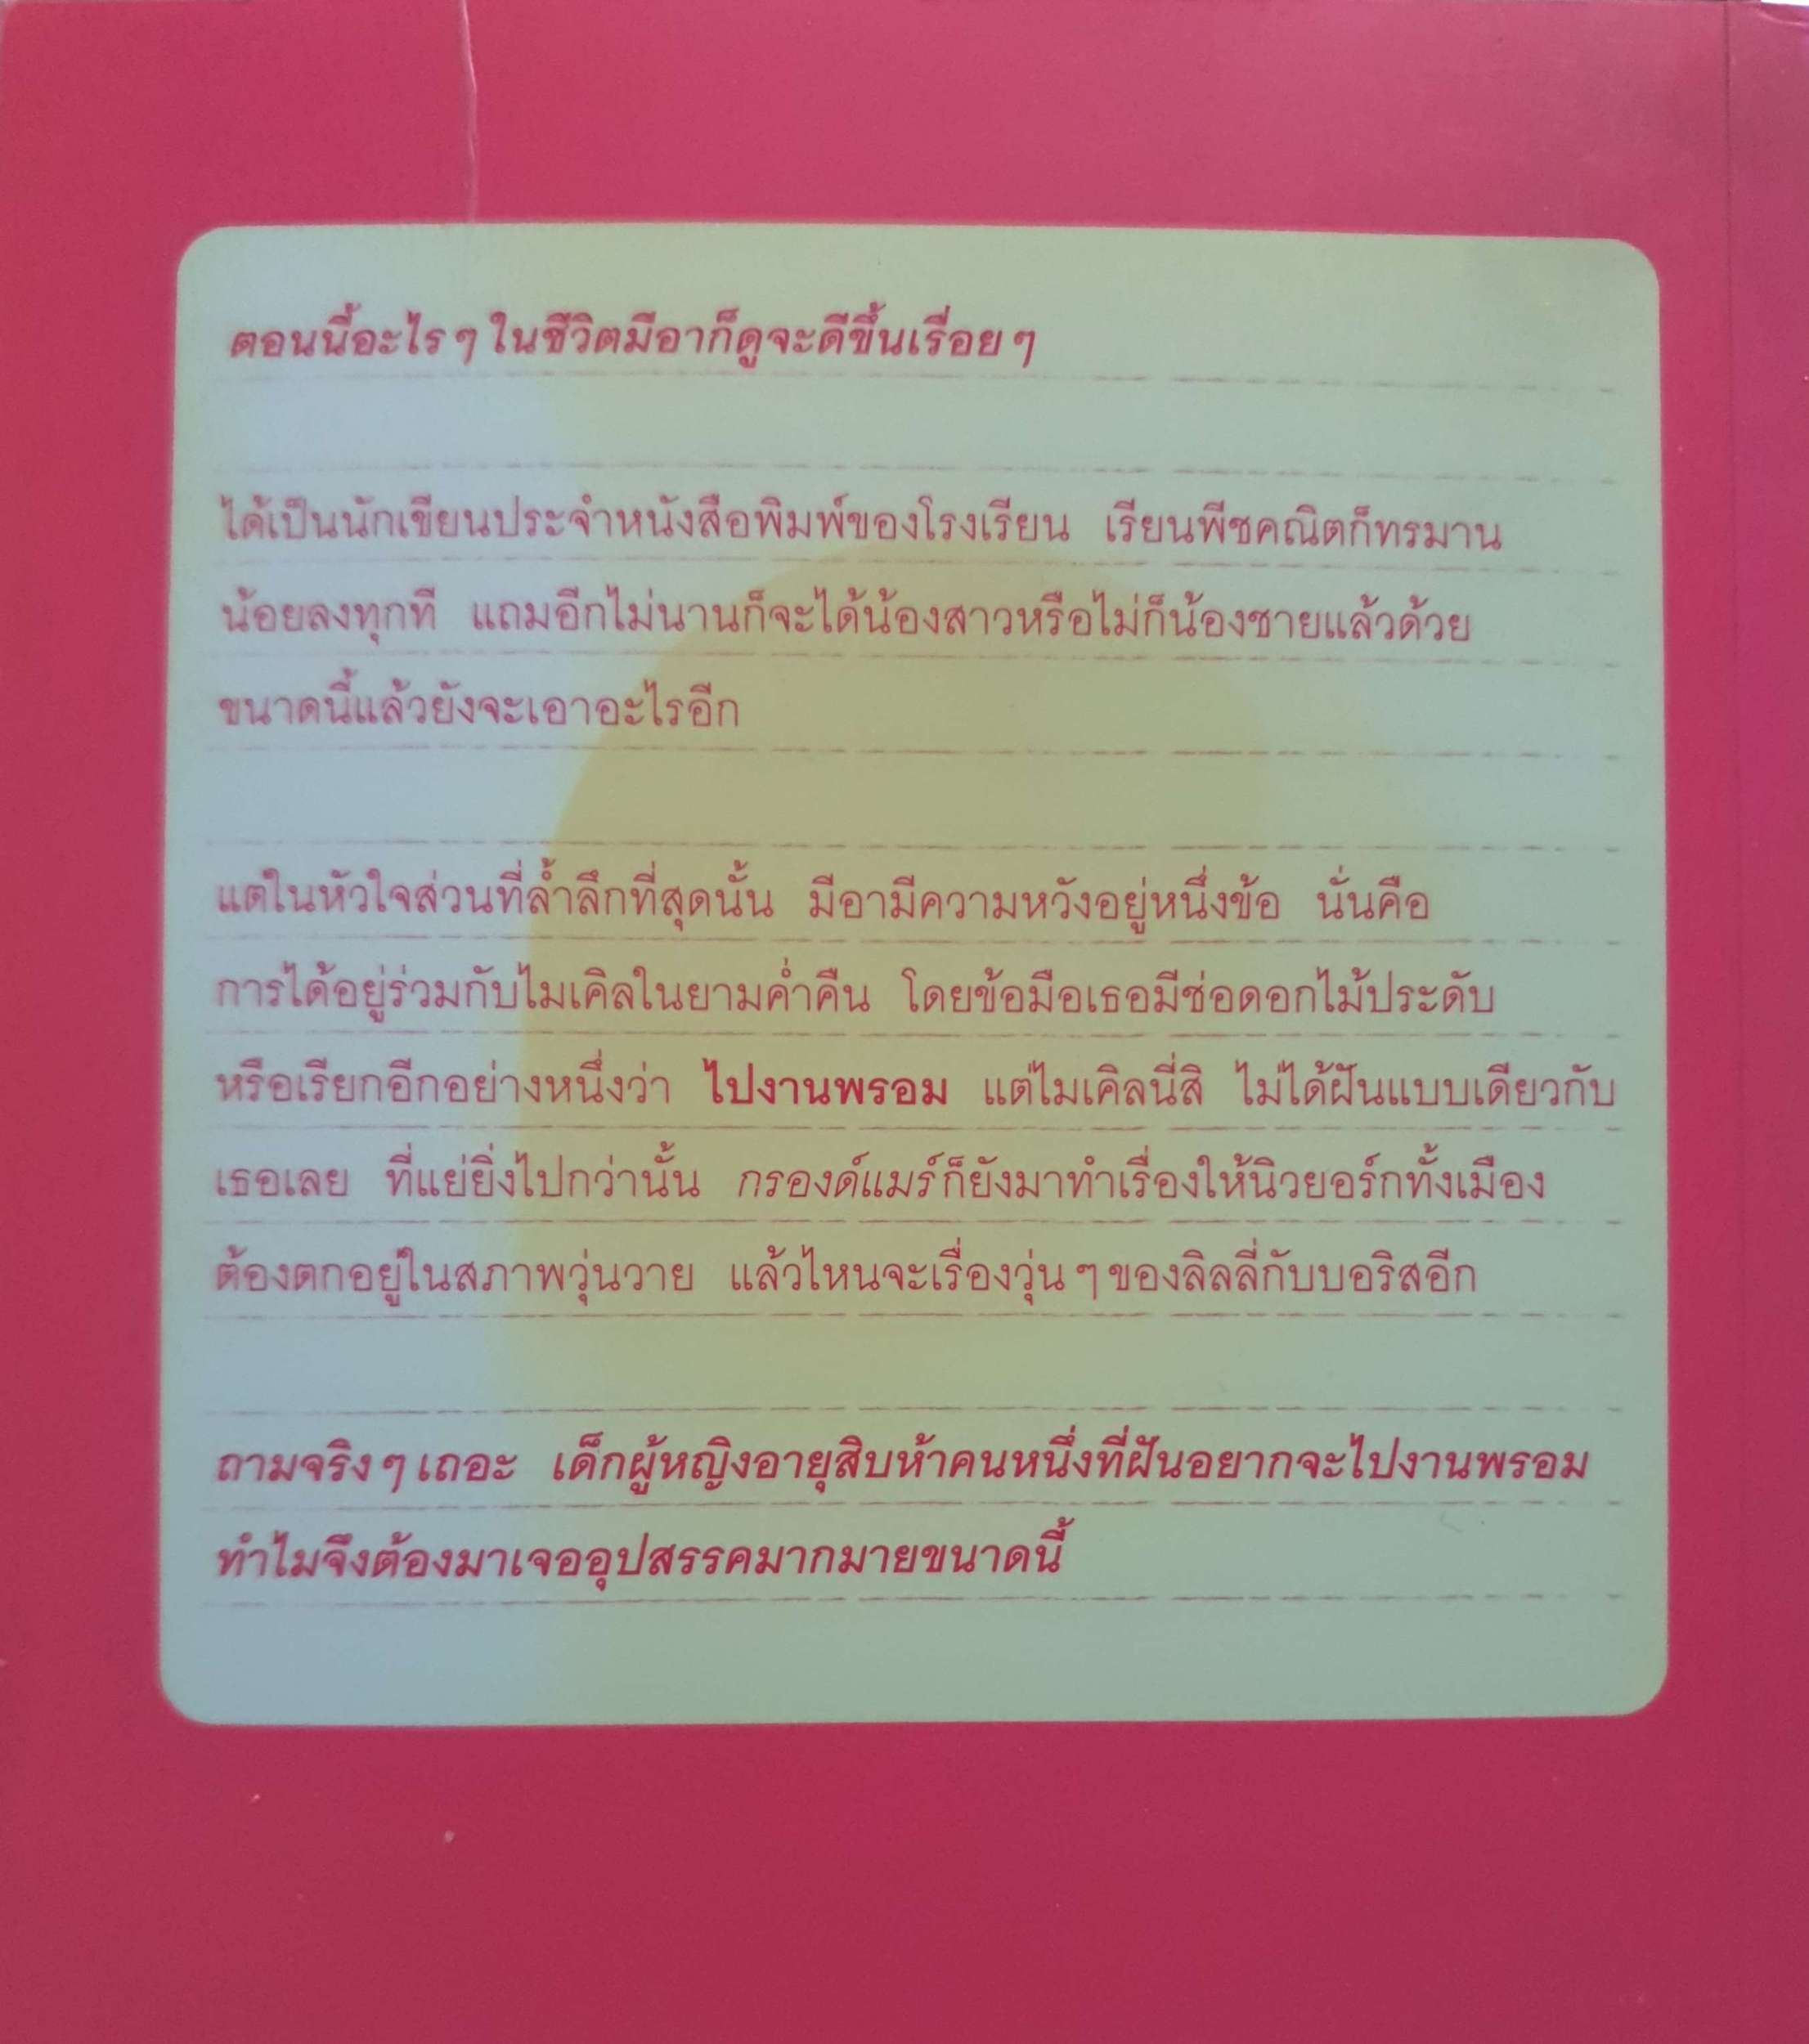 ตอนนี้อะไรๆ ในชีวิตมีอาก็ดูจะดีขึ้นเรื่อยๆ
ได้เป็นนักเขียนประจำหนังสือพิมพ์ของโรงเรียน เรียนพีชคณิตก็ทรมาน
น้อยลงทุกที แถมอีกไม่นานก็จะได้น้องสาวหรือไม่ก็น้องชายแล้วด้วย
ขนาดนี้แล้วยังจะเอาอะไรอีก
แต่ในหัวใจส่วนที่ล้ำลึกที่สุดนั้น มีอามีความหวังอยู่หนึ่งข้อ นั่นคือ
การได้อยู่ร่วมกับไมเคิลในยามค่ำคืน โดยข้อมือเธอมีช่อดอกไม้ประดับ
หรือเรียกอีกอย่างหนึ่งว่า ไปงานพรอม แต่ไมเคิลนี่สิ ไม่ได้ฝันแบบเดียวกับ
เธอเลย ที่แย่ยิ่งไปกว่านั้น กรองด์แมร์ก็ยังมาทำเรื่องให้นิวยอร์กทั้งเมือง
ต้องตกอยู่ในสภาพวุ่นวาย แล้วไหนจะเรื่องวุ่นๆ ของลิลลี่กับบอริสอีก
ถามจริงๆ เถอะ เด็กผู้หญิงอายุสิบห้าคนหนึ่งที่ฝันอยากจะไปงานพรอม
ทำไมจึงต้องมาเจออุปสรรคมากมายขนาดนี้